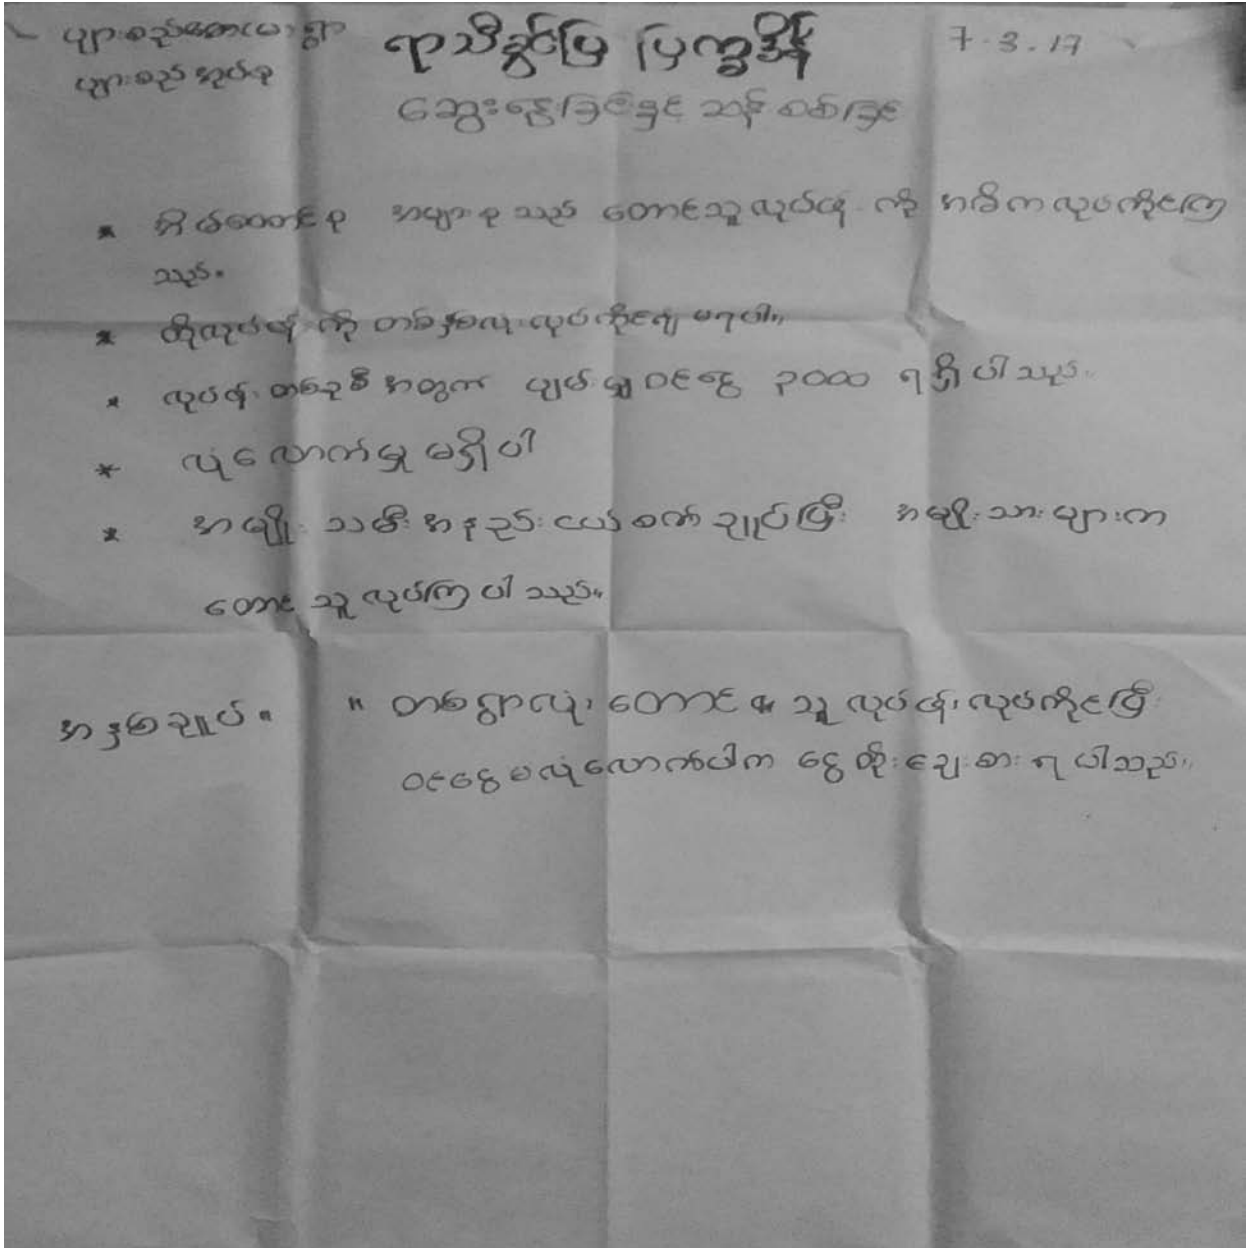 ရာသီခွင်ပြ ပြက္ခဒိန်
7.3.17
ဆွေးနွေးခြင်းနှင့် ဆန်းစစ်ခြင်း
* အိမ်ထောင်စု အများစုသည် တောင်သူလုပ်ငန်းကို အဓိကလုပ်ကိုင်ကြ
သည်။
* ထိုလုပ်ငန်းကို တစ်နှစ်လုံးလုပ်ကိုင်ရမရပါ။
* လုပ်ငန်းတစ်ခုစီအတွက် ပျမ်းမျှဝင်ငွေ ၃၀၀၀ ရရှိပါသည်။
* လုံလောက်မှုမရှိပါ
* အမျိုးသမီးအနည်းငယ်စက်ချုပ်ပြီး အမျိုးသားများက
တောင်သူလုပ်ကြပါသည်။
အနှစ်ချုပ်။ " တစ်ရွာလုံးတောင်သူလုပ်ငန်းလုပ်ကိုင်ပြီး
ဝင်ငွေမလုံလောက်ပါက ငွေတိုးချေးစားရပါသည်။